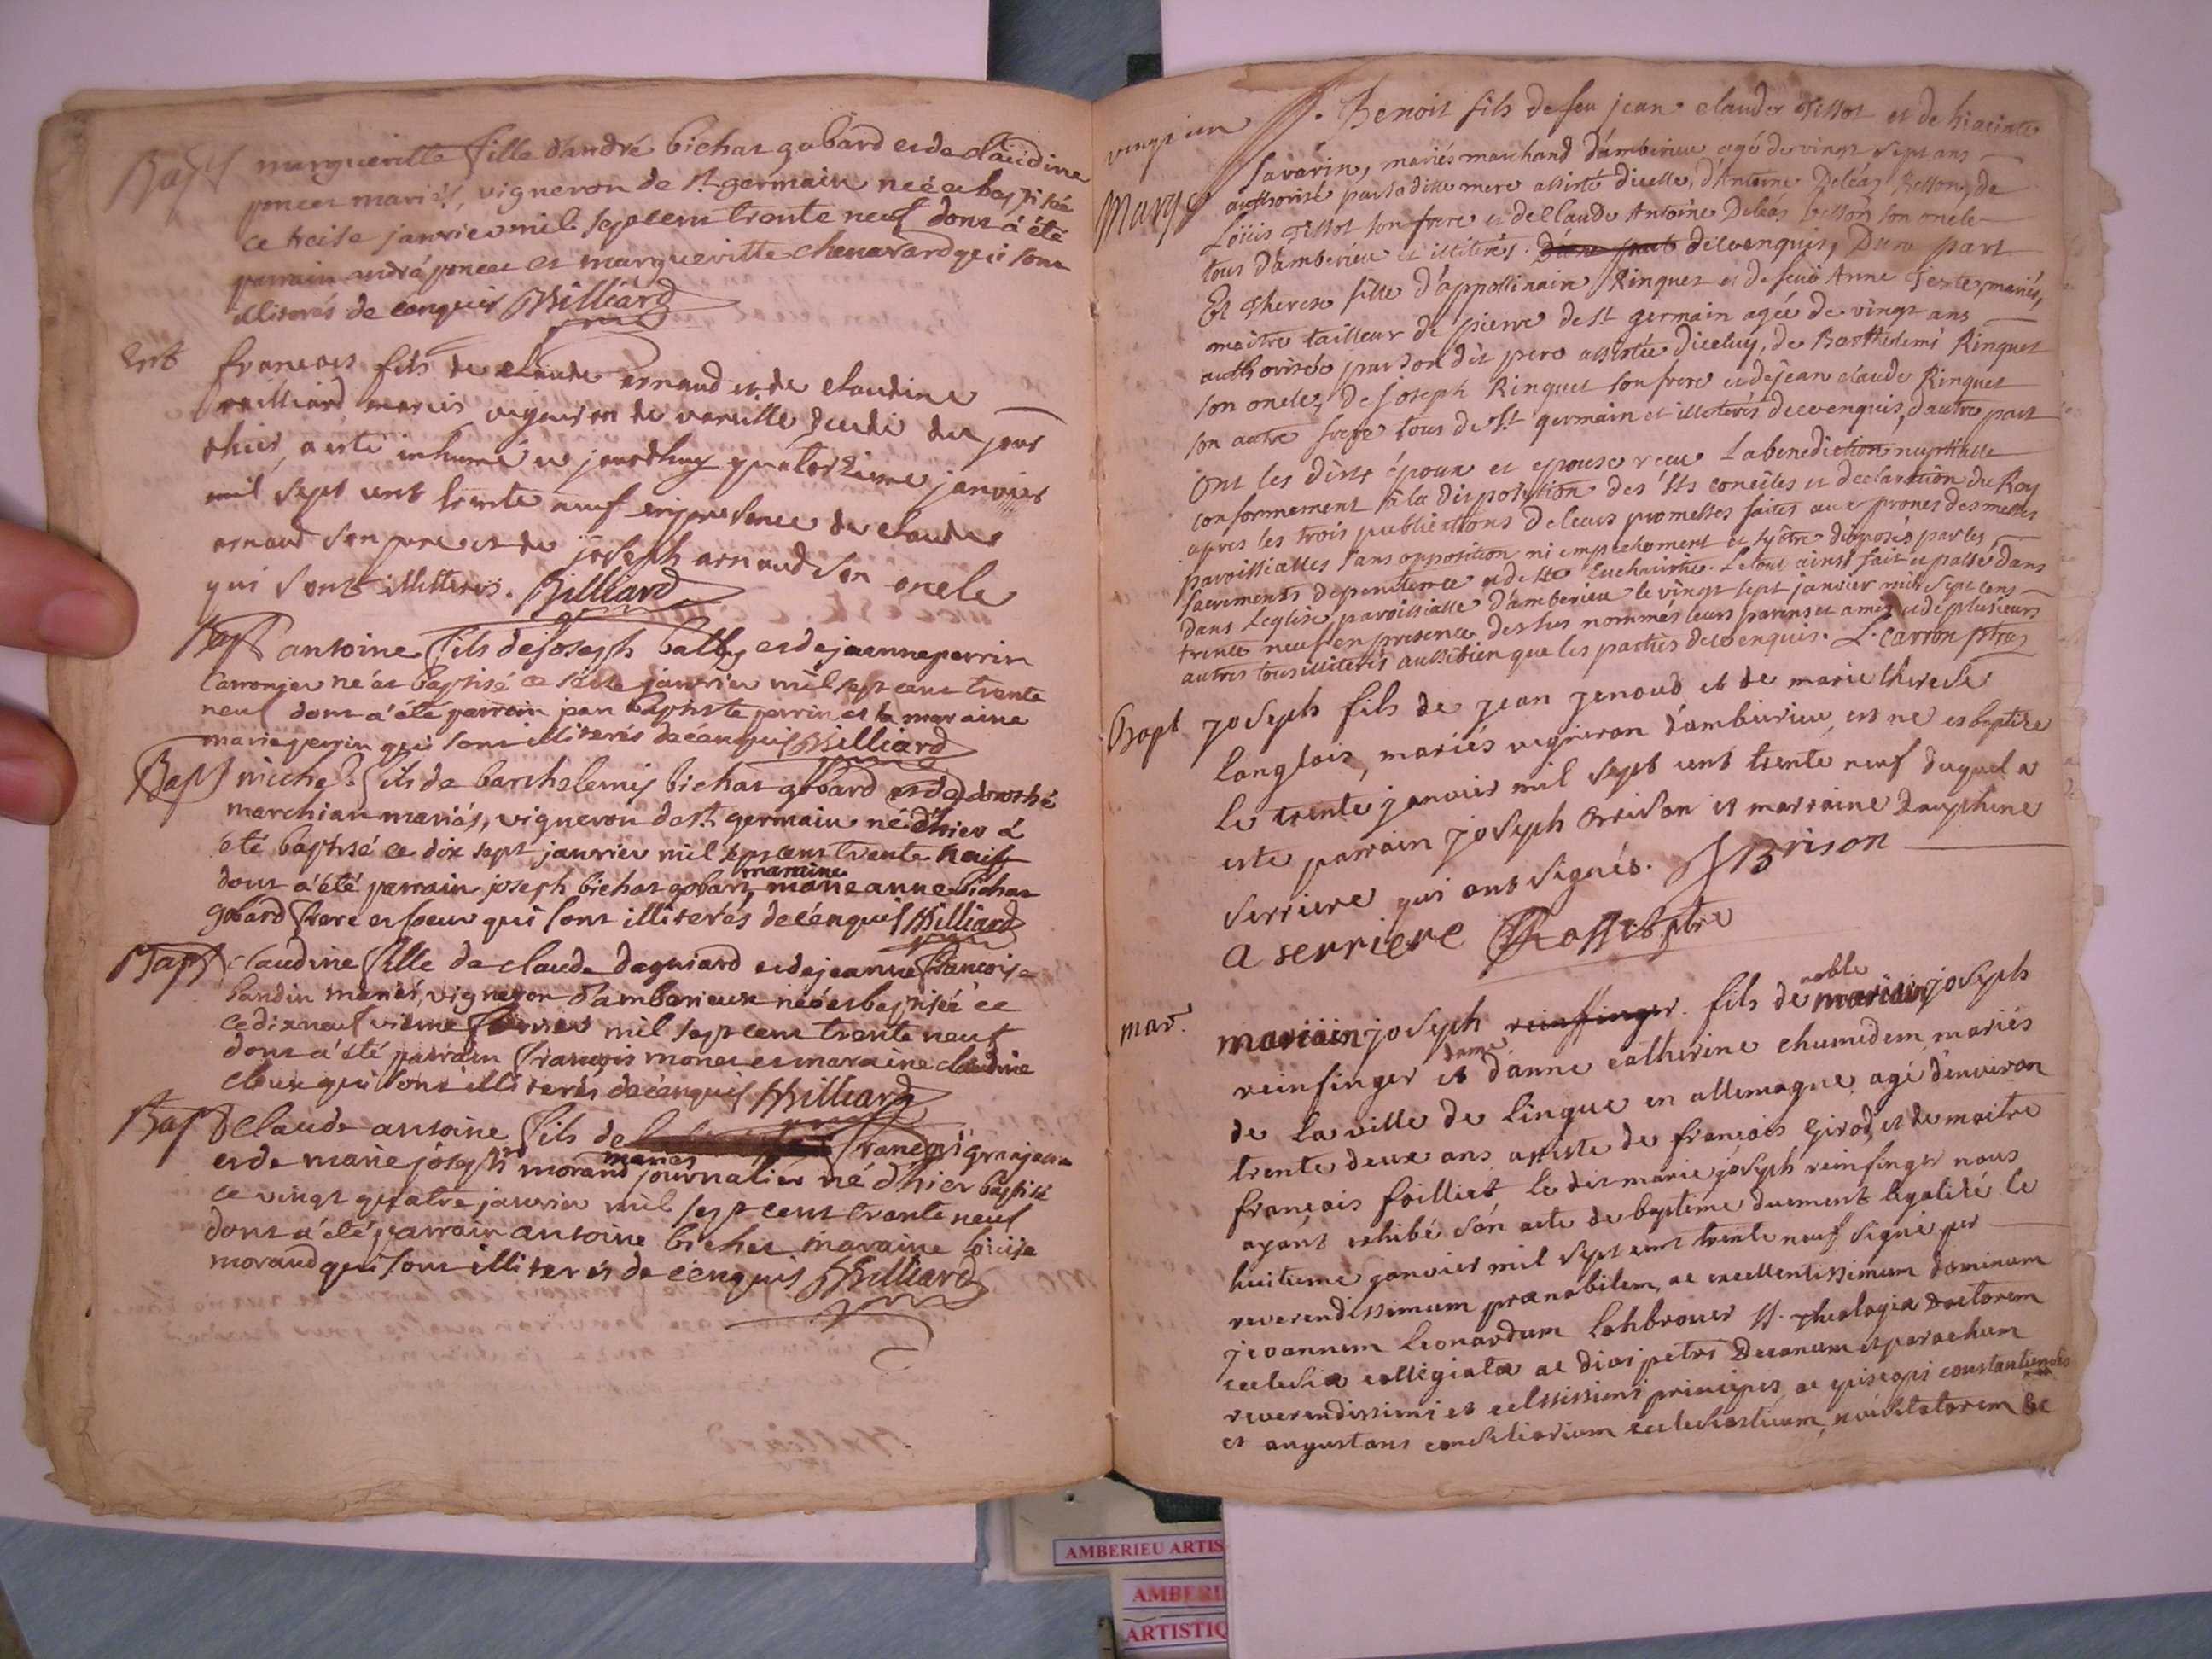 Bapt margueritte fille d'andré bichat gobard et de claudine
poncet mariés, vigneron de st germain neé et baptisée
ce treise janvier mil sept cent trente neuf dont à été
parrain andré poncet et margueritte chenavard qui sont
illiterés de ce enquis Billiard
Ent francois fils de claude arnaud et de claudine
mariés vigneron de vareille du jour
d'hier, a esté inhumé ce jourdhuy quatorzieme janvier
mil sept cent trente neuf en presence de claude
arnaud son pere et de joseph arnaud son oncle
qui sont illitteres. Billiard
Bapt antoine fils de joseph balley et de jeanne perrin
né et baptisé ce janvier mil sept cent trente
neuf dont a été parrain jean baptiste perrin et la maraine
marie perrin qui sont illiterés de ce enquis Billiard
Bapt michel fils de barthelemy bichat gobard et de dorothé
marchian mariés, vigneron de st germain né d'hier à
été baptisé ce dix sept janvier mil sept cent trente neuf
dont a été parrain joseph bichat gobart, maraine marie anne bichat
gobard frere et soeur qui sont illiterés de ce enquis Billiard
Bapt claudine fille de claude dagniard et de jeanne francoise
bandin mariés, vigneron d'amberieux neé et baptisée ce
ce dixneufvieme janvier mil sept cent trente neuf
dont a été parrain francois monet et maraine claudine
qui sont illiterés de ce enquis Billiard
Bapt Claude antoine fils de francois
et de marie joseph morand mariés journalier né d'hier baptisé
ce vingt quatre janvier mil sept cent trente neuf
dont a été parrain antoine bichet maraine
morand qui sont illiterés de ce enquis Billiard
vingt un . Benoit fils de feu jean claude Tissot et de hiacinte
Savarin, mariés marchand d'amberieu agé de vingt sept ans
Maryé authorisé par sa ditte mere assisté d'icelle, d'Antoine Deléas Besson, de
Loüis Tissot son frere et de Claude Antoine Deléas besson son oncle
tous d'amberieu et illiterés. D'une part de ce enquis, D'une part
Et Therese fille d'appollinaire Ringuet et de feuë Anne Tenter, mariés,
maitre tailleur de pierre de St germain agée de vingt ans
authorisée par son dit pere assistée d'iceluy, de Barthelemi Ringuet
son oncle, de joseph Ringuet son frere et de jean claude Ringuet
son autre frere tous de St germain et illiterés de ce enquis, d'autre part
Ont les dits époux et epouse receu La benediction nuptialle
conformement à la disposition des Sts conciles et declaration du Roy
apres les trois publications de leurs promesses faites aux prones des messes
paroissialles sans opposition ni empechement et s'y être disposés par les
sacrements de penitence et de Ste Euchariste. Le tout ainsi fait et passé dans
dans L'eglise paroissialle d'amberieu le vingt sept janvier mil sept cens
trente neuf en presence des sus nommés leurs parens et amis et de plusieurs
autres tous illiterés aussi bien que les parties de ce enquis. L. Carron ptre
Bapt joseph fils de jean jenoud et de marie therese
langlois, mariés vigneron d'amberieu est né et baptize
le trente janvier mil sept cent trente neuf duquel a
esté parrain joseph brison et marraine dauphine
serriere qui ont signés. J Brison
a serriere ptre
mar. mariain joseph reinfinger. fils de noble mariain joseph
reinfinger et dame d'anne catherine chumidem mariés
de la ville de lingue en allemagne agé d'environ
trente deux ans assisté de francois girod, et de maitre
francois foilliet le dit marie joseph reinfinger nous
ayant exhibé son acte de baptéme duement legalizé le
huitieme janvier mil sept cent trente neuf signé per
reverendissimum prænobilem, ac excellentissimum dominum
joannem leonardum lohbrouer SS. Theologiæ doctorem
ecclesiæ collegiatæ ac divi petri Decanum et parochum
reverendissimi et celsissimi principis ac episcopi constantiensis
et augustani consiliarium ecclesiasticum, visitatorem &c
AMBERIEU ARTIS
AMBERI
ARTISTIQ